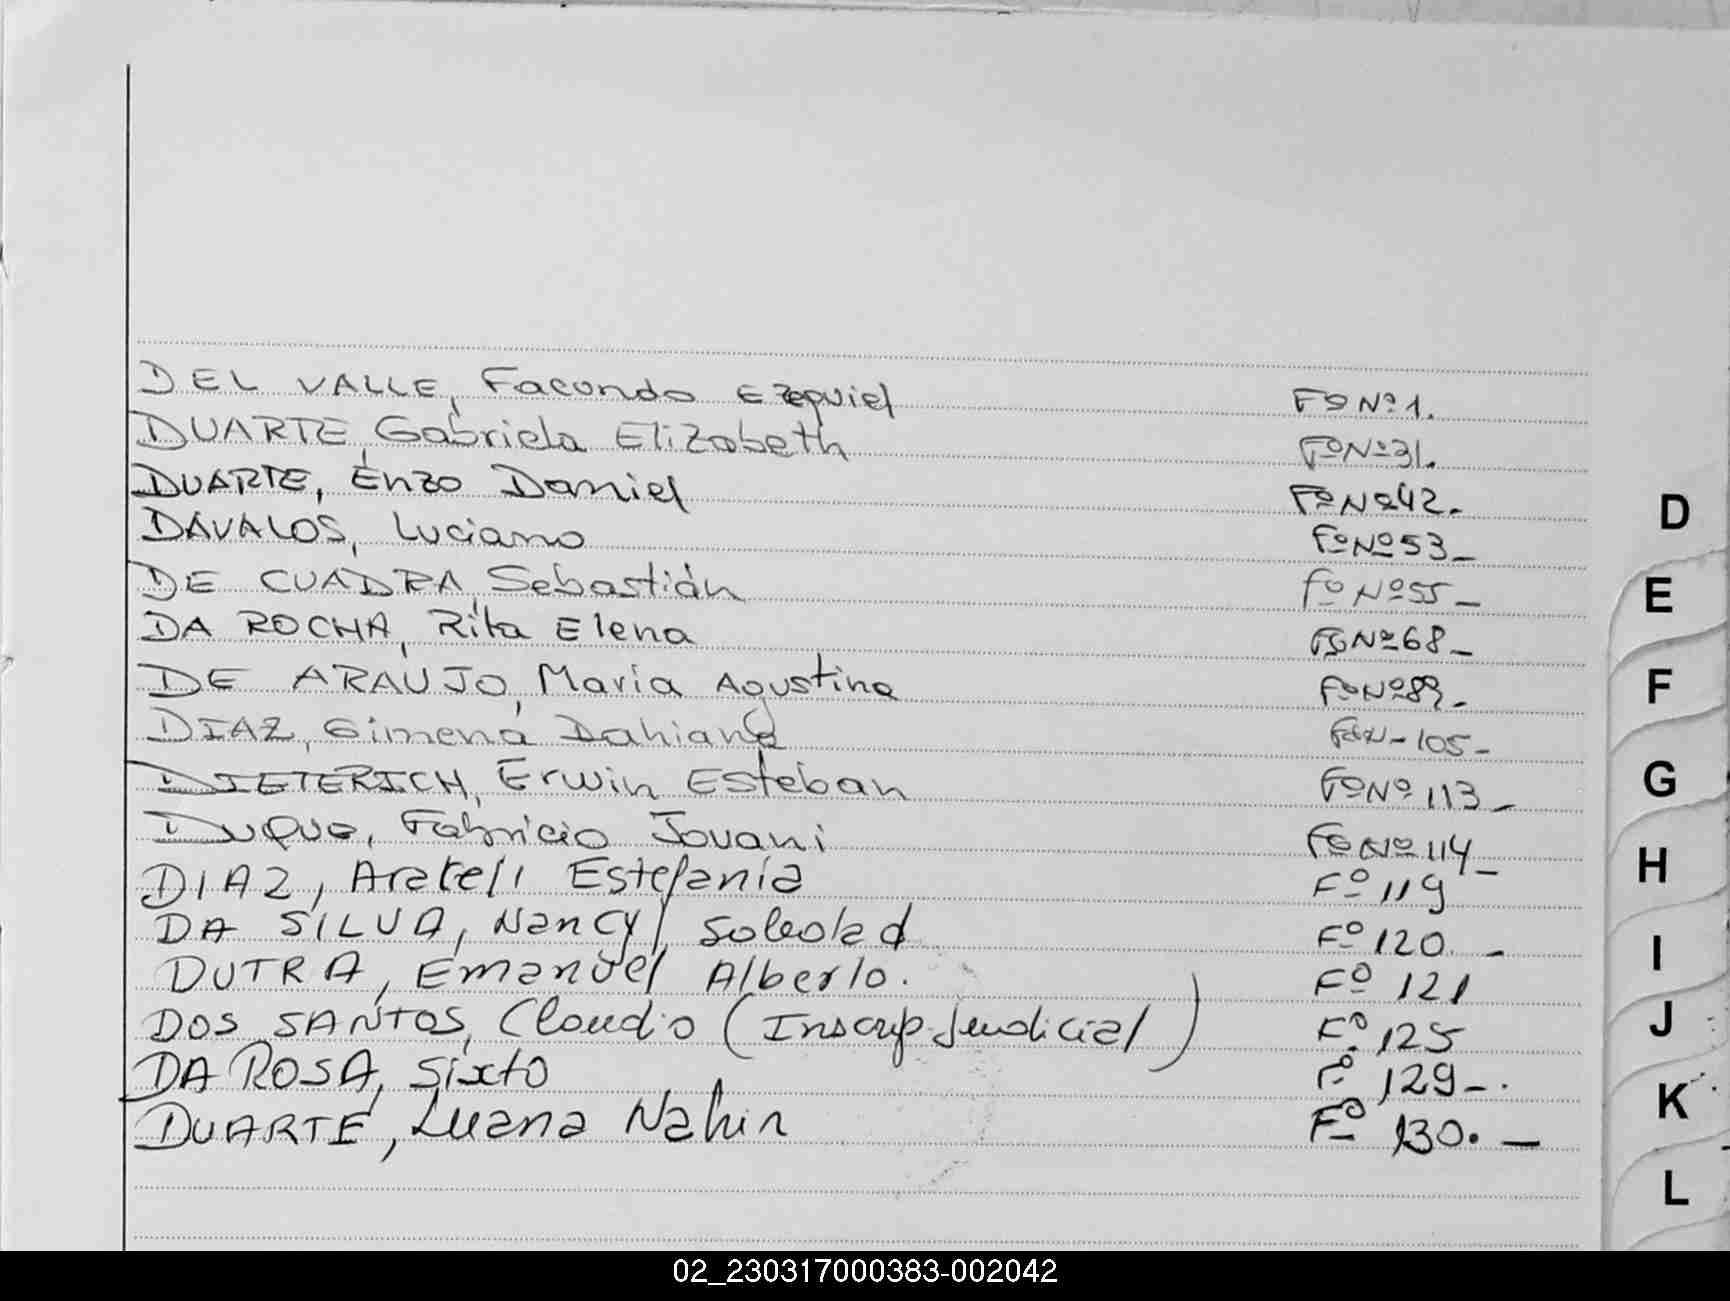 DEL VALLE, Facundo Ezequiel Fº Nº 1.
DUARTE, Gabriela Elizabeth Fº Nº 31.
DUARTE, Enzo Daniel Fº Nº 42.
DAVALOS, Luciano Fº Nº 53_
DE CUADRA, Sebastián Fº Nº 55_
DA ROCHA, Rita Elena Fº Nº 68_
DE ARAUJO, Maria Agustina Fº Nº 89.
DIAZ, Gimena Dahiana FºN-105-
DIETERICH, Erwin Esteban Fº Nº 113_
DUQUE, Fabricio Jovani Fº Nº 114_
DIAZ, Arateli Estefanía Fº 119
DA SILVA, Nancy Soledad Fº 120_
DUTRA, Emanuel Alberto. Fº 121
DOS SANTOS, Claudio (Inscrip. Judicial) Fº 125
DA ROSA, Sixto Fº 129-.
DUARTE, Luana Nahir Fº 130.—
D
E
F
G
H
I
J
K
L
02_230317000383-002042